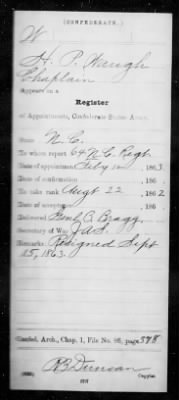 (CONFEDERATE.)
W
H. P. Waugh
Chaplain
Appears on a
Register
of Appointments, Confederate States Army.
State N. C.
To whom report 64 N.C. Regt.
Date of appointment Feby 10, 1863
Date of confirmation , 186 .
To take rank Augt 22, 1862
Date of accept , 186 .
Delivered Genl B. Bragg
Secretary of War J A S.
Remarks: Resigned Sept
15, 1863.
Confed. Arch., Chap. 1, File No. 86, page 378
R B Duncan
Copyist.